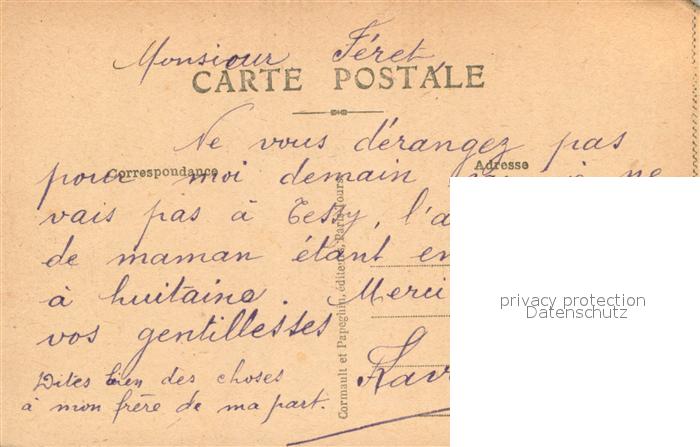 Monsieur Féret,
CARTE POSTALE
Ne vous dérangez pas
Correspondance
Adresse
pour moi demain je ne
vais pas à Tessy, l'a
de maman étant en
à huitaine. Merci
vos gentillesses
Dites bien des choses
à mon frère de ma part.
Cormault et Papeghin, éditeurs, Paris-Tours.
privacy protection
Datenschutz